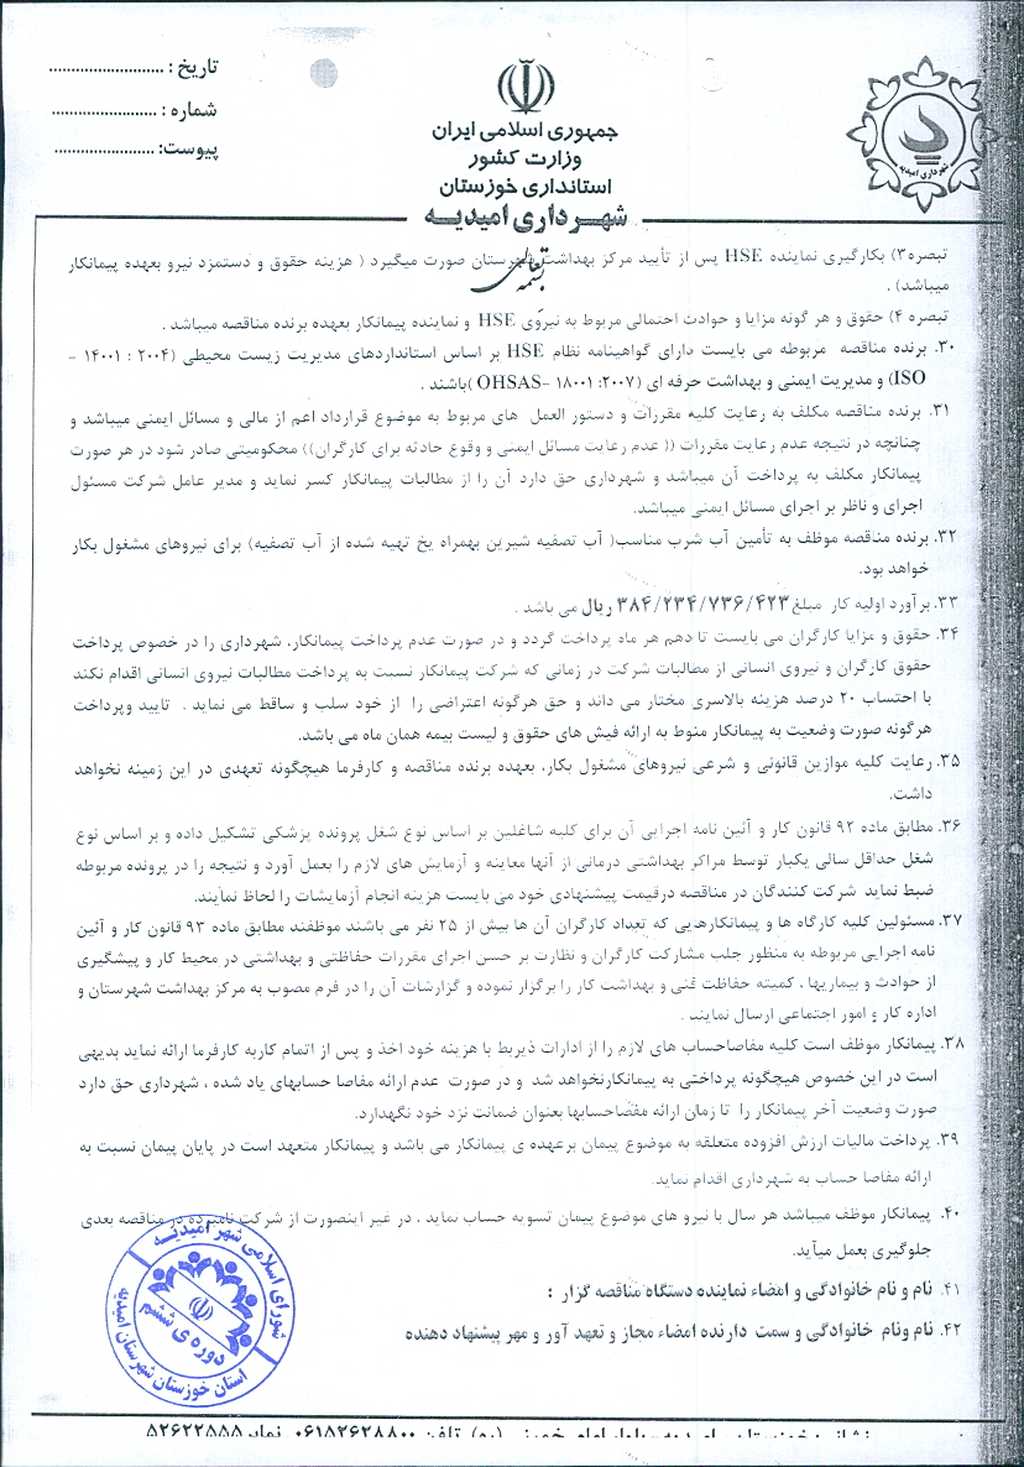 تاریخ : ..........................
شماره : ........................
پیوست: ......................
جمهوری اسلامی ایران
وزارت کشور
استانداری خوزستان
شهرداری امیدیه
شهرداری امیدیه
بسمه تعالی
تبصره۳) بکارگیری نماینده HSE پس از تأیید مرکز بهداشت شهرستان صورت میگیرد ( هزینه حقوق و دستمزد نیرو بعهده پیمانکار
میباشد) .
تبصره ۴) حقوق و هر گونه مزایا و حوادث احتمالی مربوط به نیروی HSE و نماینده پیمانکار بعهده برنده مناقصه میباشد .
۳۰. برنده مناقصه مربوطه می بایست دارای گواهینامه نظام HSE بر اساس استانداردهای مدیریت زیست محیطی (۲۰۰۴ : ۱۴۰۰۱ -
ISO) و مدیریت ایمنی و بهداشت حرفه ای (۲۰۰۷: ۱۸۰۰۱ -OHSAS )باشند .
۳۱. برنده مناقصه مکلف به رعایت کلیه مقررات و دستور العمل های مربوط به موضوع قرارداد اعم از مالی و مسائل ایمنی میباشد و
چنانچه در نتیجه عدم رعایت مقررات (( عدم رعایت مسائل ایمنی و وقوع حادثه برای کارگران)) محکومیتی صادر شود در هر صورت
پیمانکار مکلف به پرداخت آن میباشد و شهرداری حق دارد آن را از مطالبات پیمانکار کسر نماید و مدیر عامل شرکت مسئول
اجرای و ناظر بر اجرای مسائل ایمنی میباشد.
۳۲. برنده مناقصه موظف به تأمین آب شرب مناسب( آب تصفیه شیرین بهمراه یخ تهیه شده از آب تصفیه) برای نیروهای مشغول بکار
خواهد بود.
۳۳. برآورد اولیه کار مبلغ ۳۸۴/۲۳۴/۷۳۶/۴۲۳ ریال می باشد .
۳۴. حقوق و مزایا کارگران می بایست تا دهم هر ماه پرداخت گردد و در صورت عدم پرداخت پیمانکار، شهرداری را در خصوص پرداخت
حقوق کارگران و نیروی انسانی از مطالبات شرکت در زمانی که شرکت پیمانکار نسبت به پرداخت مطالبات نیروی انسانی اقدام نکند
با احتساب ۲۰ درصد هزینه بالاسری مختار می داند و حق هرگونه اعتراضی را از خود سلب و ساقط می نماید . تایید وپرداخت
هرگونه صورت وضعیت به پیمانکار منوط به ارائه فیش های حقوق و لیست بیمه همان ماه می باشد.
۳۵. رعایت کلیه موازین قانونی و شرعی نیروهای مشغول بکار، بعهده برنده مناقصه و کارفرما هیچگونه تعهدی در این زمینه نخواهد
داشت.
۳۶. مطابق ماده ۹۲ قانون کار و آئین نامه اجرایی آن برای کلیه شاغلین بر اساس نوع شغل پرونده پزشکی تشکیل داده و بر اساس نوع
شغل حداقل سالی یکبار توسط مراکز بهداشتی درمانی از آنها معاینه و آزمایش های لازم را بعمل آورد و نتیجه را در پرونده مربوطه
ضبط نماید شرکت کنندگان در مناقصه درقیمت پیشنهادی خود می بایست هزینه انجام آزمایشات را لحاظ نمایند.
۳۷. مسئولین کلیه کارگاه ها و پیمانکارهایی که تعداد کارگران آن ها بیش از ۲۵ نفر می باشند موظفند مطابق ماده ۹۳ قانون کار و آئین
نامه اجرایی مربوطه به منظور جلب مشارکت کارگران و نظارت بر حسن اجرای مقررات حفاظتی و بهداشتی در محیط کار و پیشگیری
از حوادث و بیماریها ، کمیته حفاظت فنی و بهداشت کار را برگزار نموده و گزارشات آن را در فرم مصوب به مرکز بهداشت شهرستان و
اداره کار و امور اجتماعی ارسال نمایند .
۳۸. پیمانکار موظف است کلیه مفاصاحساب های لازم را از ادارات ذیربط با هزینه خود اخذ و پس از اتمام کاربه کارفرما ارائه نماید بدیهی
است در این خصوص هیچگونه پرداختی به پیمانکارنخواهد شد و در صورت عدم ارائه مفاصا حسابهای یاد شده ، شهرداری حق دارد
صورت وضعیت آخر پیمانکار را تا زمان ارائه مفصاحسابها بعنوان ضمانت نزد خود نگهدارد.
۳۹. پرداخت مالیات ارزش افزوده متعلقه به موضوع پیمان برعهده ی پیمانکار می باشد و پیمانکار متعهد است در پایان پیمان نسبت به
ارائه مفاصا حساب به شهرداری اقدام نماید.
۴۰. پیمانکار موظف میباشد هر سال با نیرو های موضوع پیمان تسویه حساب نماید ، در غیر اینصورت از شرکت نامبرده در مناقصه بعدی
جلوگیری بعمل میآید.
۴۱. نام و نام خانوادگی و امضاء نماینده دستگاه مناقصه گزار :
۴۲. نام ونام خانوادگی و سمت دارنده امضاء مجاز و تعهد آور و مهر پیشنهاد دهنده
شورای اسلامی شهر امیدیه
دوره ی ششم
استان خوزستان شهرستان امیدیه
نشانی: خوزستان - امیدیه - بلوار امام خمینی (ره) تلفن ۰۶۱۵۲۶۲۸۸۰۰ نمابر ۵۲۶۲۲۵۵۵